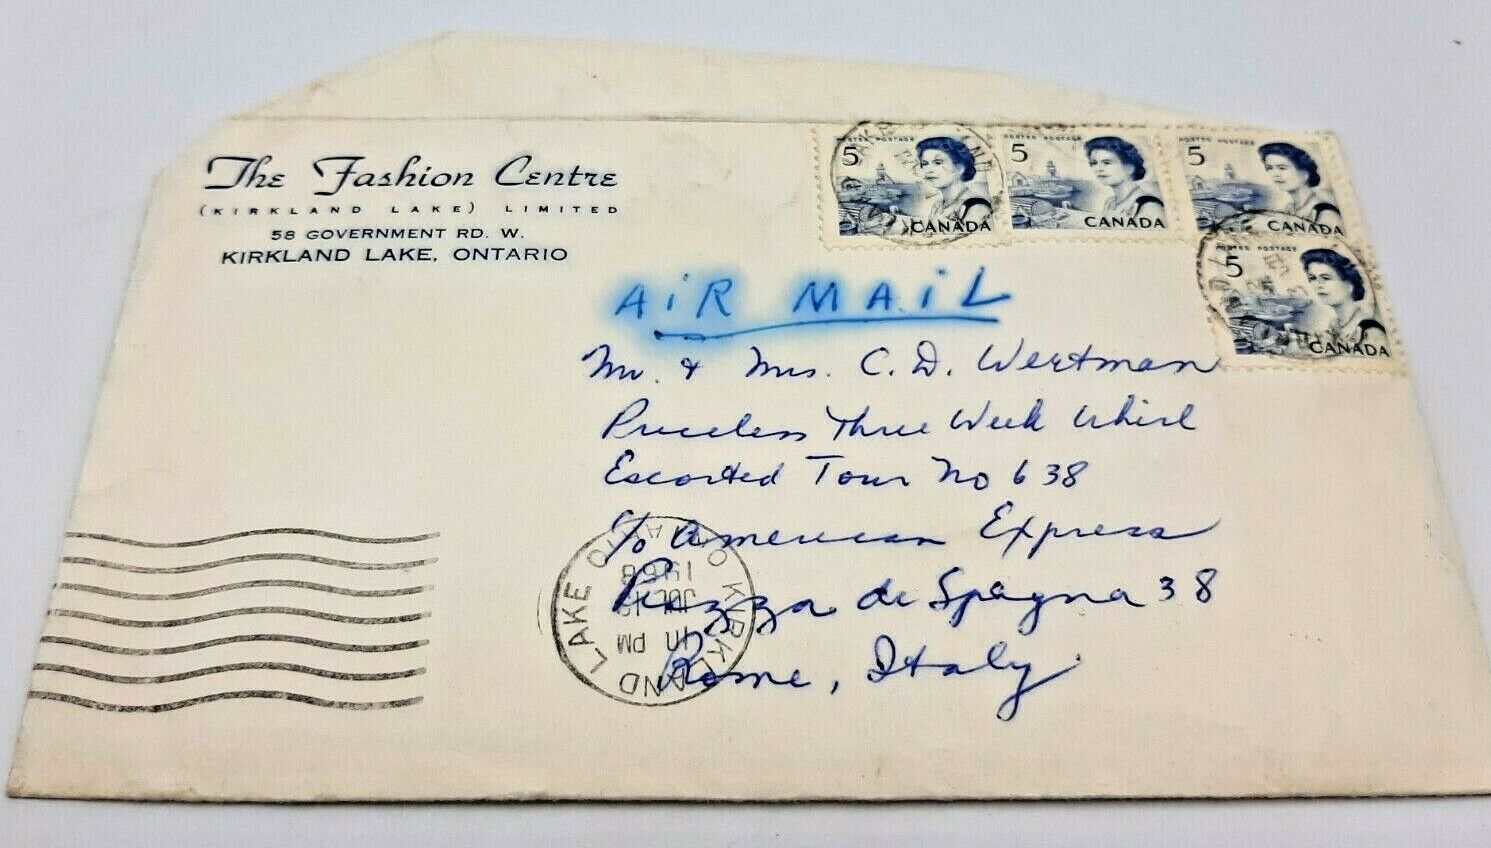 The Fashion Centre
(KIRKLAND LAKE) LIMITED
58 GOVERNMENT RD. W.
KIRKLAND LAKE, ONTARIO
5
POSTES POSTAGE
CANADA
5
POSTES POSTAGE
CANADA
5
POSTES POSTAGE
CANADA
5
POSTES POSTAGE
CANADA
AiR MAiL
Mr. & Mrs. C. D. Wertman
Priceless Three Week Whirl
Escorted Tour No 638
c/o American Express
Piazza de Spagna 38
Rome, Italy
KIRKLAND LAKE ONTARIO
PM
1968